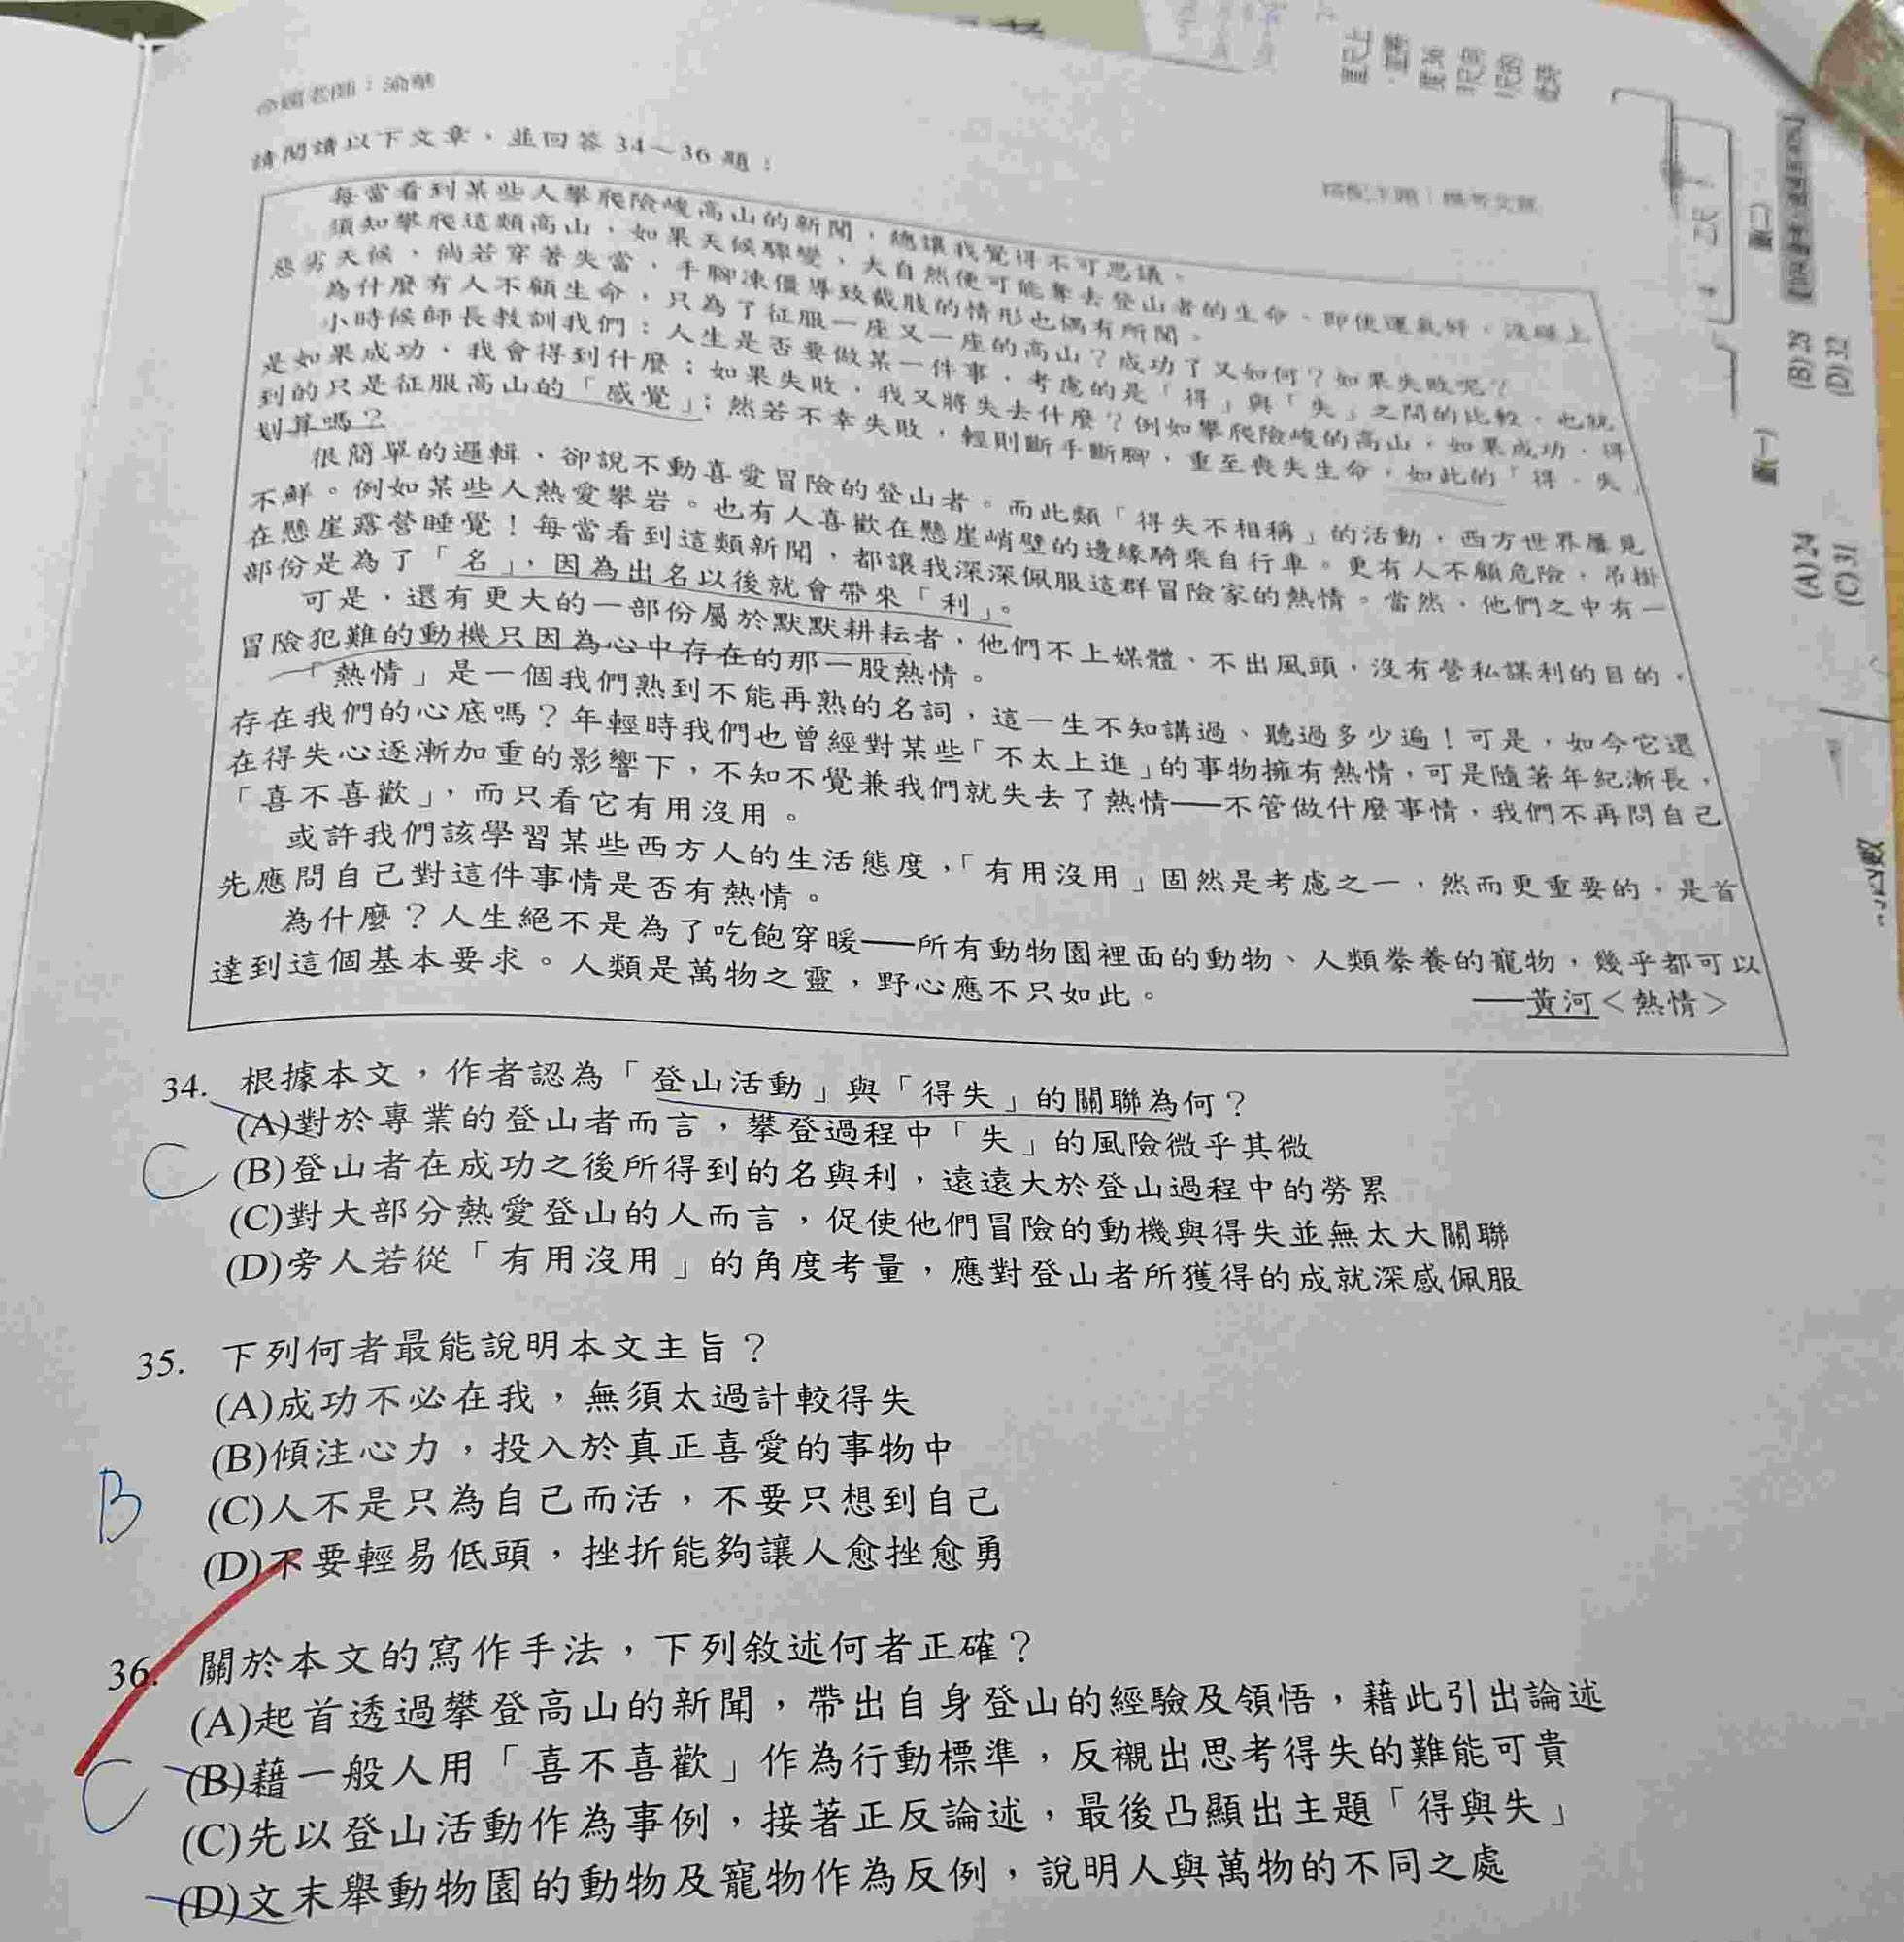 命題老師：渝華
請閱讀以下文章，並回答 34～36 題：
每當看到某些人攀爬險峻高山的新聞，總讓我覺得不可思議。
須知攀爬這類高山，如果天候驟變，大自然便可能奪去登山者的生命。即使運氣好，沒碰上
惡劣天候，倘若穿著失當，手腳凍僵導致截肢的情形也偶有所聞。
為什麼有人不顧生命，只為了征服一座又一座的高山？成功了又如何？如果失敗呢？
小時候師長教訓我們：人生是否要做某一件事，考慮的是「得」與「失」之間的比較。也就
是如果成功，我會得到什麼；如果失敗，我又將失去什麼？例如攀爬險峻的高山，如果成功，得
到的只是征服高山的「感覺」；然若不幸失敗，輕則斷手斷腳，重至喪失生命，如此的「得、失」
划算嗎？
很簡單的邏輯，卻說不動喜愛冒險的登山者。而此類「得失不相稱」的活動，西方世界屢見
不鮮。例如某些人熱愛攀岩。也有人喜歡在懸崖峭壁的邊緣騎乘自行車。更有人不顧危險，吊掛
在懸崖露營睡覺！每當看到這類新聞，都讓我深深佩服這群冒險家的熱情。當然，他們之中有一
部份是為了「名」，因為出名以後就會帶來「利」。
可是，還有更大的一部份屬於默默耕耘者，他們不上媒體、不出風頭，沒有營私謀利的目的，
冒險犯難的動機只因為心中存在的那一股熱情。
「熱情」是一個我們熟到不能再熟的名詞，這一生不知講過、聽過多少遍！可是，如今它還
存在我們的心底嗎？年輕時我們也曾經對某些「不太上進」的事物擁有熱情，可是隨著年紀漸長，
在得失心逐漸加重的影響下，不知不覺兼我們就失去了熱情──不管做什麼事情，我們不再問自己
「喜不喜歡」，而只看它有用沒用。
或許我們該學習某些西方人的生活態度，「有用沒用」固然是考慮之一，然而更重要的，是首
先應問自己對這件事情是否有熱情。
為什麼？人生絕不是為了吃飽穿暖──所有動物園裡面的動物、人類豢養的寵物，幾乎都可以
達到這個基本要求。人類是萬物之靈，野心應不只如此。
──黃河＜熱情＞
34. 根據本文，作者認為「登山活動」與「得失」的關聯為何？
(A)對於專業的登山者而言，攀登過程中「失」的風險微乎其微
C
(B)登山者在成功之後所得到的名與利，遠遠大於登山過程中的勞累
(C)對大部分熱愛登山的人而言，促使他們冒險的動機與得失並無太大關聯
(D)旁人若從「有用沒用」的角度考量，應對登山者所獲得的成就深感佩服
35. 下列何者最能說明本文主旨？
(A)成功不必在我，無須太過計較得失
(B)傾注心力，投入於真正喜愛的事物中
B
(C)人不是只為自己而活，不要只想到自己
(D)不要輕易低頭，挫折能夠讓人愈挫愈勇
36. 關於本文的寫作手法，下列敘述何者正確？
(A)起首透過攀登高山的新聞，帶出自身登山的經驗及領悟，藉此引出論述
(B)藉一般人用「喜不喜歡」作為行動標準，反襯出思考得失的難能可貴
C
(C)先以登山活動作為事例，接著正反論述，最後凸顯出主題「得與失」
(D)文末舉動物園的動物及寵物作為反例，說明人與萬物的不同之處
(B) 23
(D) 32
(A) 24
(C) 31